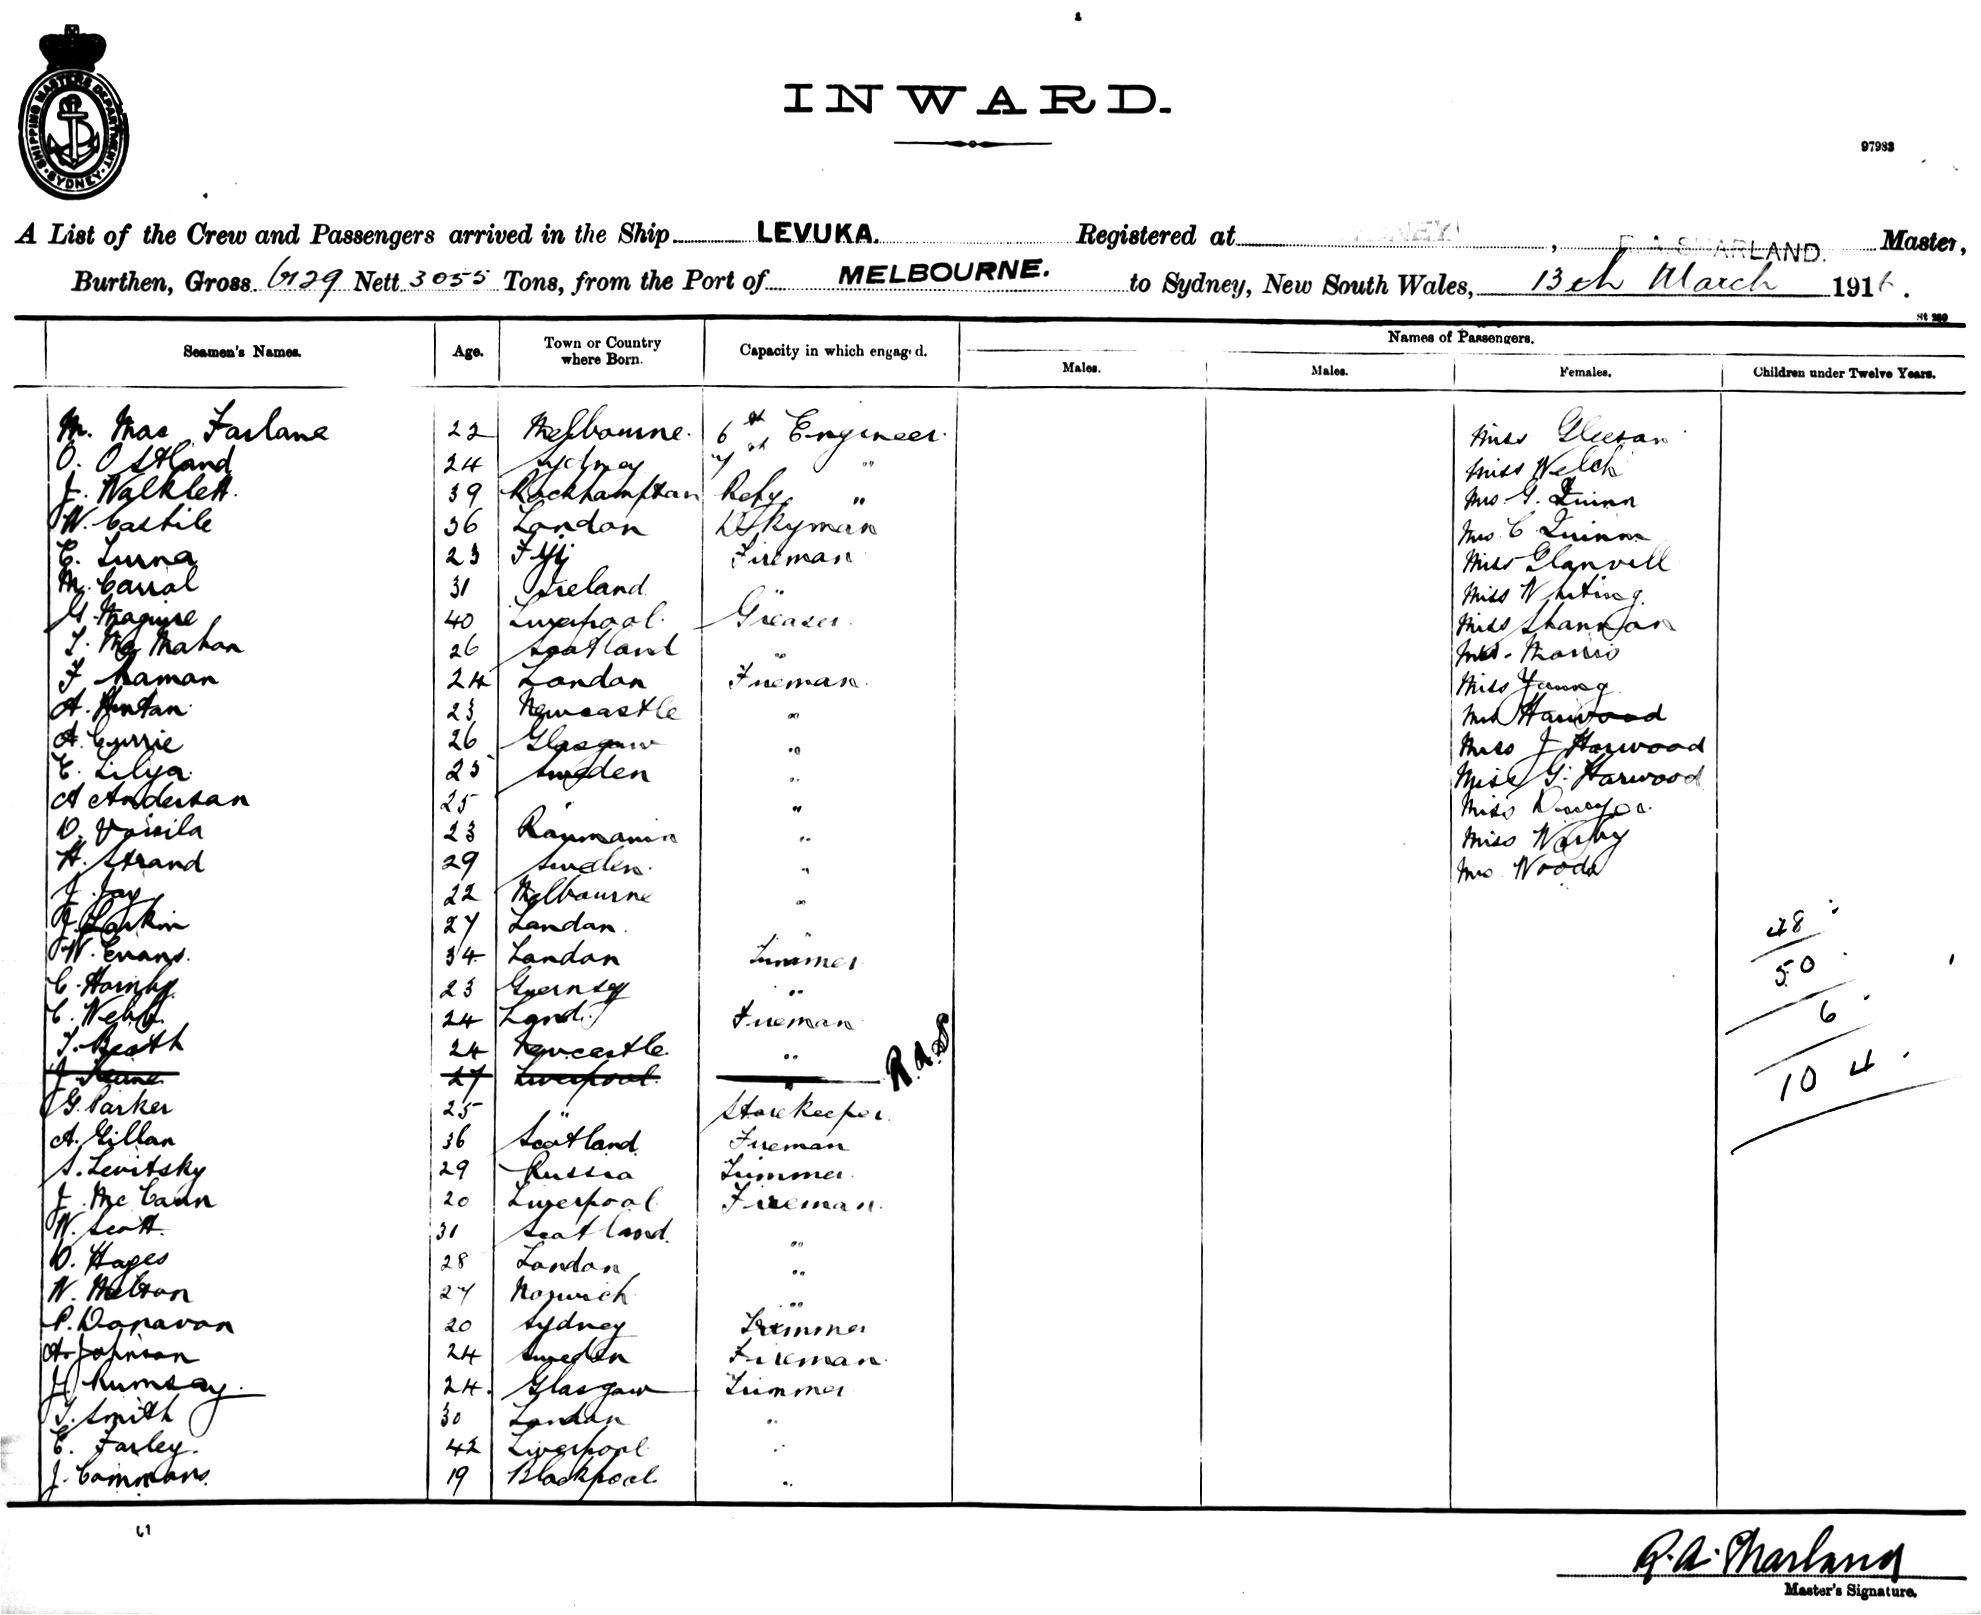 SHIPPING MASTERS DEPARTMENT. SYDNEY.
INWARD.
97983
A List of the Crew and Passengers arrived in the Ship LEVUKA. Registered at SYDNEY, R. A. SHARLAND. Master,
Burthen, Gross 6129 Nett 3055 Tons, from the Port of MELBOURNE. to Sydney, New South Wales, 13th March 1916.
St 260
Seamen's Names. Age. Town or Country where Born. Capacity in which engag d. Names of Passengers.
Males. Males. Females. Children under Twelve Years.
M. Mac Farlane 22 Melbourne. 6th Engineer Miss Gleeson
O. Ostland 24 Sydney 7th " Miss Welch
J. Walklett. 39 Rockhampton Refg " Mrs G. Quinn
W. Castile 36 London Dkyman Mrs C Quinn
C. Turna 23 Fiji Fireman Miss Glanvill
M. Carrol 31 Ireland " Miss Whiting
G. Maguire 40 Liverpool Greaser Miss Shannon
T. Mc Mahon 26 Scotland " Morris
F. 24 London Fireman Miss Young
A. Hinton 23 Newcastle " Harwood
A. Currie 26 Glasgow " Miss J Harwood
E. Lilya 25 Sweden " Miss G. Harwood
A Anderson 25 " " Miss Dwyer
D. Vassila 23 Roumania " Miss
H. Strand 29 Sweden " Mrs Woods
J. Jay 22 Melbourne "
J. Larkin 27 London "
W. Evans. 34 London Trimmer
C. Hornby 23 Guernsey "
C. Webb 24 Lond. Fireman
T. 24 Newcastle "
J. Keane 27 Liverpool " R.A.S
G. Parker 25 " Storekeeper
A. Gillan 36 Scotland Fireman
S. Levitsky 29 Russia Trimmer
J. Mc Cann 20 Liverpool Fireman
W. Scott 31 Scotland "
D. Hayes 28 London "
W. Melton 27 Norwich "
P. Donavon 20 Sydney Trimmer
A. Johnson 24 Sweden Fireman
J. Rumsay 24 Glasgow Trimmer
T. Smith 30 London "
E. Farley. 42 Liverpool "
J. Cammons 19 Blackpool "
48
50
6
104
61
R. A. Sharland
Master's Signature.